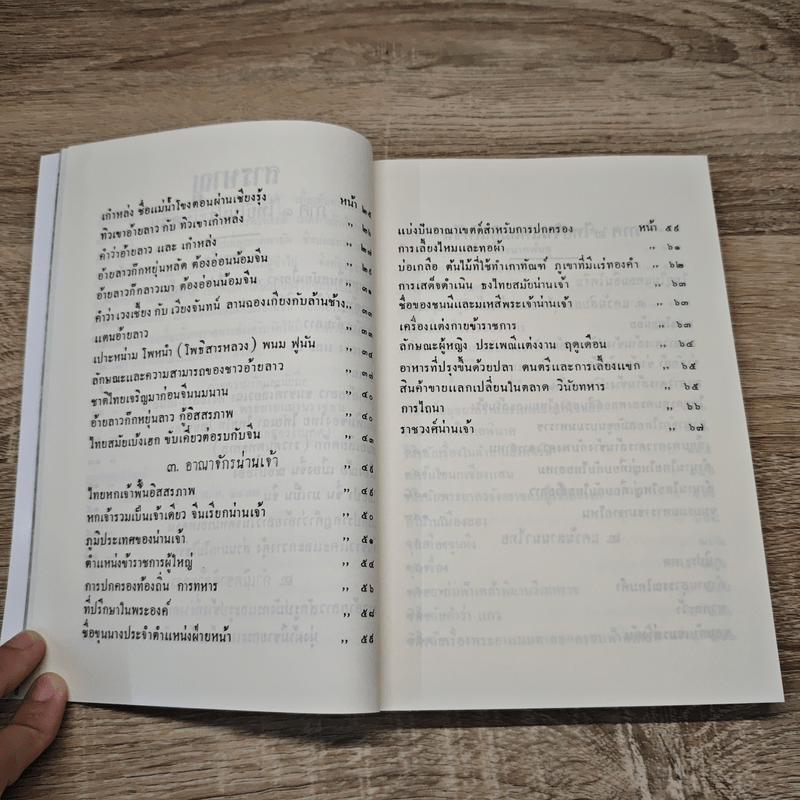 เก๋าหล่ง ชื่อแม่น้ำโขงตอนผ่านเชียงรุ้ง หน้า ๒๕
ทิวเขาอ้ายลาว กับ ทิวเขาเก๋าหล่ง ,, ๒๖
คำว่าอ้ายลาว และ เก๋าหล่ง ,, ๒๗
อ้ายลาวก๊กหยุ่นหลัด ต้องอ่อนน้อมจีน
อ้ายลาวก๊กลาวเมา ต้องอ่อนน้อมจีน
คำว่าเวงเชียง กับ เวียงจันทน์ ลานฉองเกียงกับล้านช้าง,,
แตนอ้ายลาว ,, ๓๓
เปาะหน่าม โพหนำ (โพธิสารหลวง) พนม ฟูนัน ,, ๓๔
ลักษณะและความสามารถของชาวอ้ายลาว ,, ๓๗
ชาติไทยเจริญมาก่อนจีนนมนาน ,, ๔๐
อ้ายลาวก๊กหยุ่นลาว กู้อิสสรภาพ ,, ๔๐
ไทยสมัยเบ้งเฮก ขับเคี่ยวต่อรบกับจีน ,, ๔๓
๓. อาณาจักรน่านเจ้า ,, ๔๙
ไทยหกเจ้าฟื้นอิสสรภาพ ,, ๔๙
หกเจ้ารวมเป็นเจ้าเดียว จีนเรียกน่านเจ้า ,, ๕๐
ภูมิประเทศของน่านเจ้า ,, ๕๑
ตำแหน่งข้าราชการผู้ใหญ่ ,, ๕๔
การปกครองท้องถิ่น การทหาร ,, ๕๖
ที่ปรึกษาในพระองค์ ,, ๕๘
ชื่อขุนนางประจำตำแหน่งฝ่ายหน้า ,, ๕๙
แบ่งปันอาณาเขตต์สำหรับการปกครอง หน้า ๕๙
การเลี้ยงไหมและทอผ้า ,, ๖๑
บ่อเกลือ ต้นไม้ที่ใช้ทำเกาทัณฑ์ ภูเขาที่มีแร่ทองคำ ,, ๖๒
การเสด็จดำเนิน ธงไทยสมัยน่านเจ้า ,, ๖๓
ชื่อของชนนีและมเหสีพระเจ้าน่านเจ้า ,, ๖๓
เครื่องแต่งกายข้าราชการ ,, ๖๓
ลักษณะผู้หญิง ประเพณีแต่งงาน ฤดูเดือน ,, ๖๔
อาหารที่ปรุงขึ้นด้วยปลา ดนตรีและการเลี้ยงแขก ,, ๖๕
สินค้าขายแลกเปลี่ยนในตลาด วินัยทหาร ,, ๖๕
การไถนา ,, ๖๖
ราชวงศ์น่านเจ้า ,, ๖๗